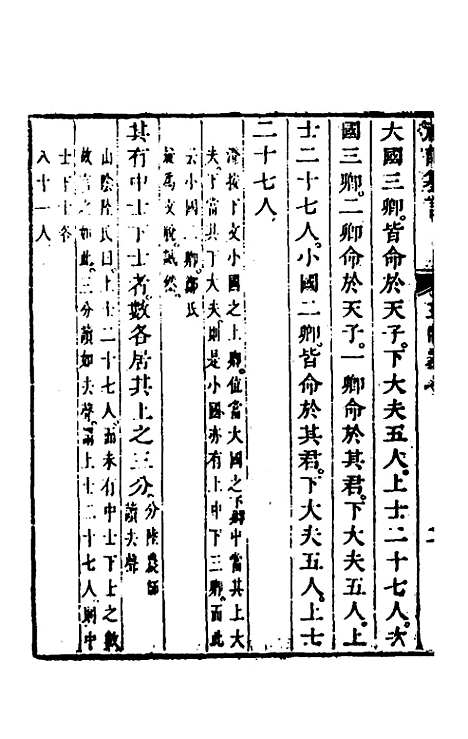 大國三卿。皆命於天子。下大夫五人。上士二十七人。次
國三卿。二卿命於天子。一卿命於其君。下大夫五人。上
士二十七人。小國二卿。皆命於其君。下大夫五人。上士
二十七人。
澄按下文小國之上卿。位當大國之下卿。中當其上大
夫。下當其下大夫。則是小國亦有上中下三卿。而此
云小國二卿。鄭氏
疑為文脫誠然。
其有中士下士者。數各居其上之三分 分陸農師
讀去聲
山陰陸氏曰。上士二十七人。而未有中士下士之數
故言之如此。三分讀如去聲。謂上士二十七人。則中
士下士各
八十一人